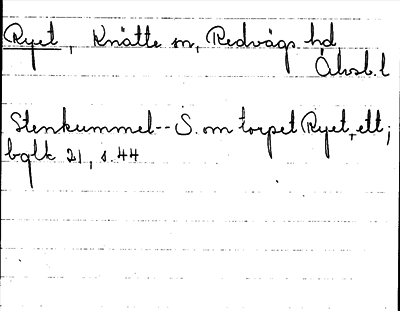 Ryet, Knätte sn, Redvägs hd
Älvsb. l
Stenkummel-- S. om torpet Ryet, ett;
bglk 21, s. 44